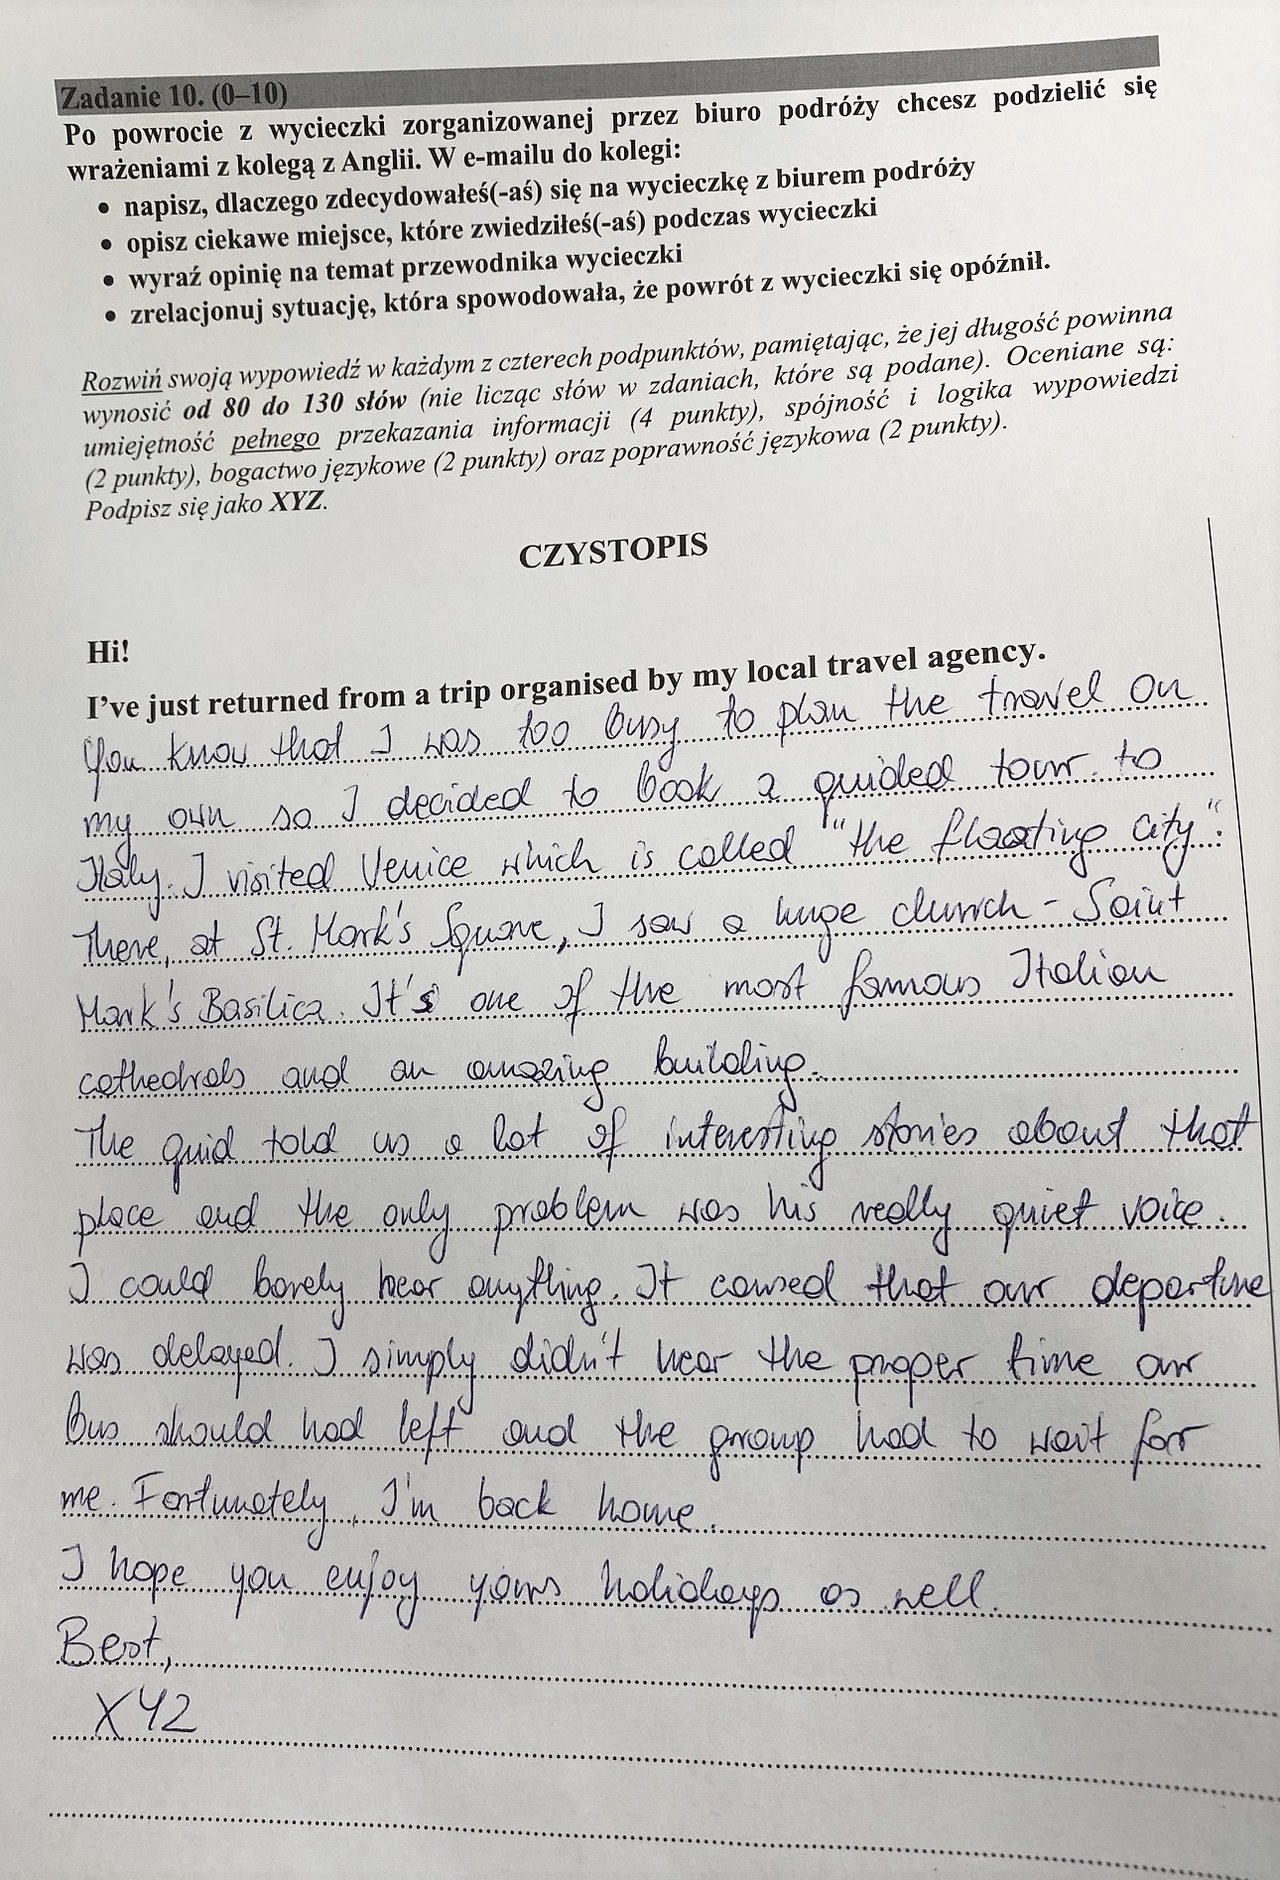 Zadanie 10. (0–10)
Po powrocie z wycieczki zorganizowanej przez biuro podróży chcesz podzielić się
wrażeniami z kolegą z Anglii. W e-mailu do kolegi:
• napisz, dlaczego zdecydowałeś(-aś) się na wycieczkę z biurem podróży
• opisz ciekawe miejsce, które zwiedziłeś(-aś) podczas wycieczki
• wyraź opinię na temat przewodnika wycieczki
• zrelacjonuj sytuację, która spowodowała, że powrót z wycieczki się opóźnił.
Rozwiń swoją wypowiedź w każdym z czterech podpunktów, pamiętając, że jej długość powinna
wynosić od 80 do 130 słów (nie licząc słów w zdaniach, które są podane). Oceniane są:
umiejętność pełnego przekazania informacji (4 punkty), spójność i logika wypowiedzi
(2 punkty), bogactwo językowe (2 punkty) oraz poprawność językowa (2 punkty).
Podpisz się jako XYZ.
CZYSTOPIS
Hi!
I've just returned from a trip organised by my local travel agency.
You know that I was too busy to plan the travel on
my own so I decided to book a guided tour to
Italy. I visited Venice which is called "the floating city".
There, at St. Mark's Square, I saw a huge church - Saint
Mark's Basilica. It's one of the most famous Italian
cathedrals and an amazing building.
The guid told us a lot of interesting stories about that
place and the only problem was his really quiet voice.
I could barely hear anything. It caused that our departure
was delayed. I simply didn't hear the proper time our
bus should had left and the group had to wait for
me. Fortunately, I'm back home.
I hope you enjoy yours holidays as well.
Best,
XYZ